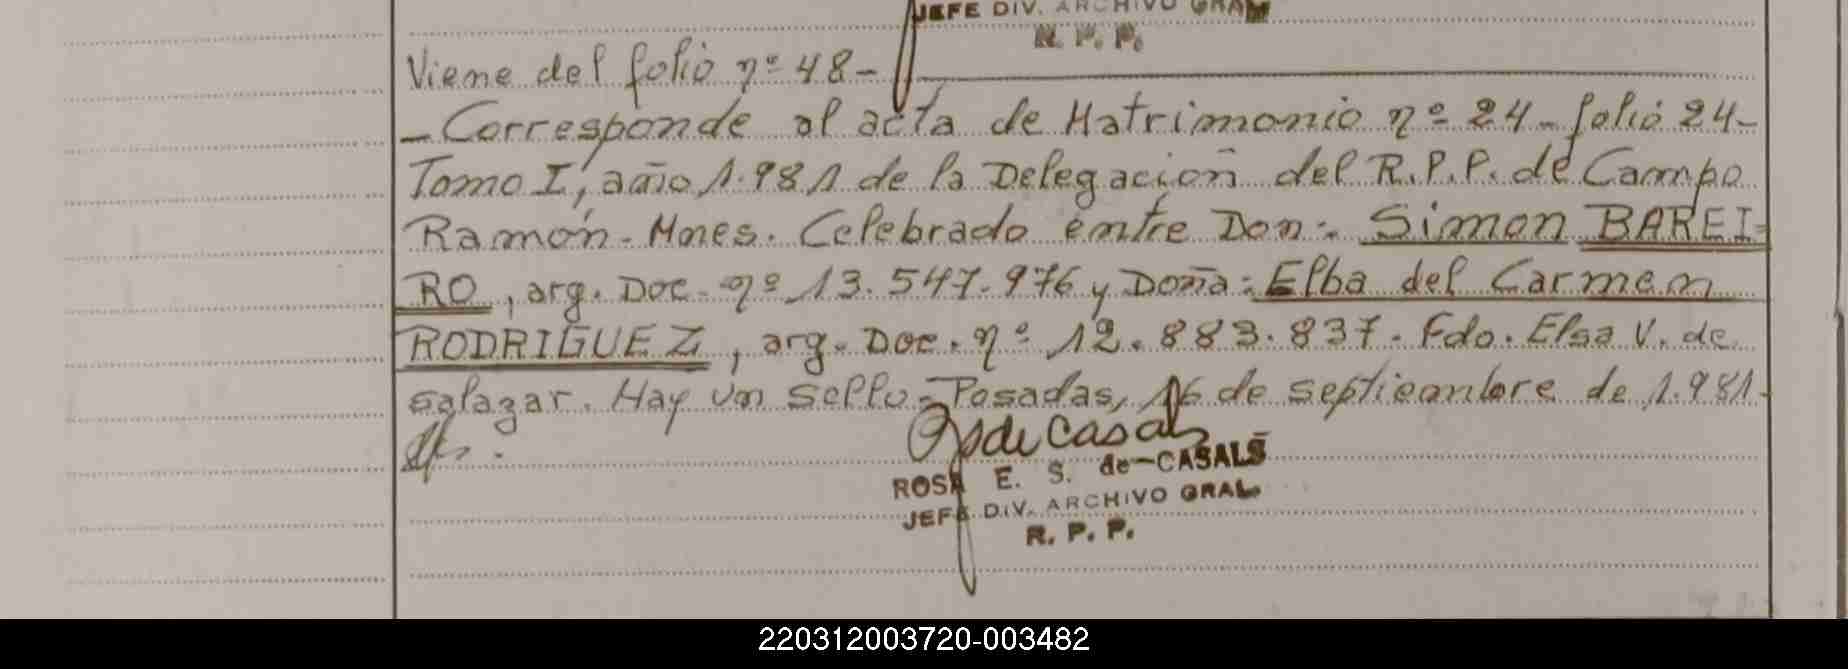 JEFE DIV. ARCHIVO GRAL
R. P. P.
Viene del folio nº 48-
- Corresponde al acta de Matrimonio nº 24- folio 24-
Tomo I, año 1.981 de la Delegación del R.P.P. de Campo
Ramón- Mnes. Celebrado entre Don: Simon BAREI-
RO, arg. Doc. nº 13.547.976 y Doña: Elba del Carmen
RODRIGUEZ, arg. Doc. nº 12.883.837. Fdo. Elsa V. de
salazar. Hay un sello.- Posadas, 16 de septiembre de 1.981-
de Casals
ROSA E. S. de CASALS
JEFE DIV. ARCHIVO GRAL.
R. P. P.
220312003720-003482